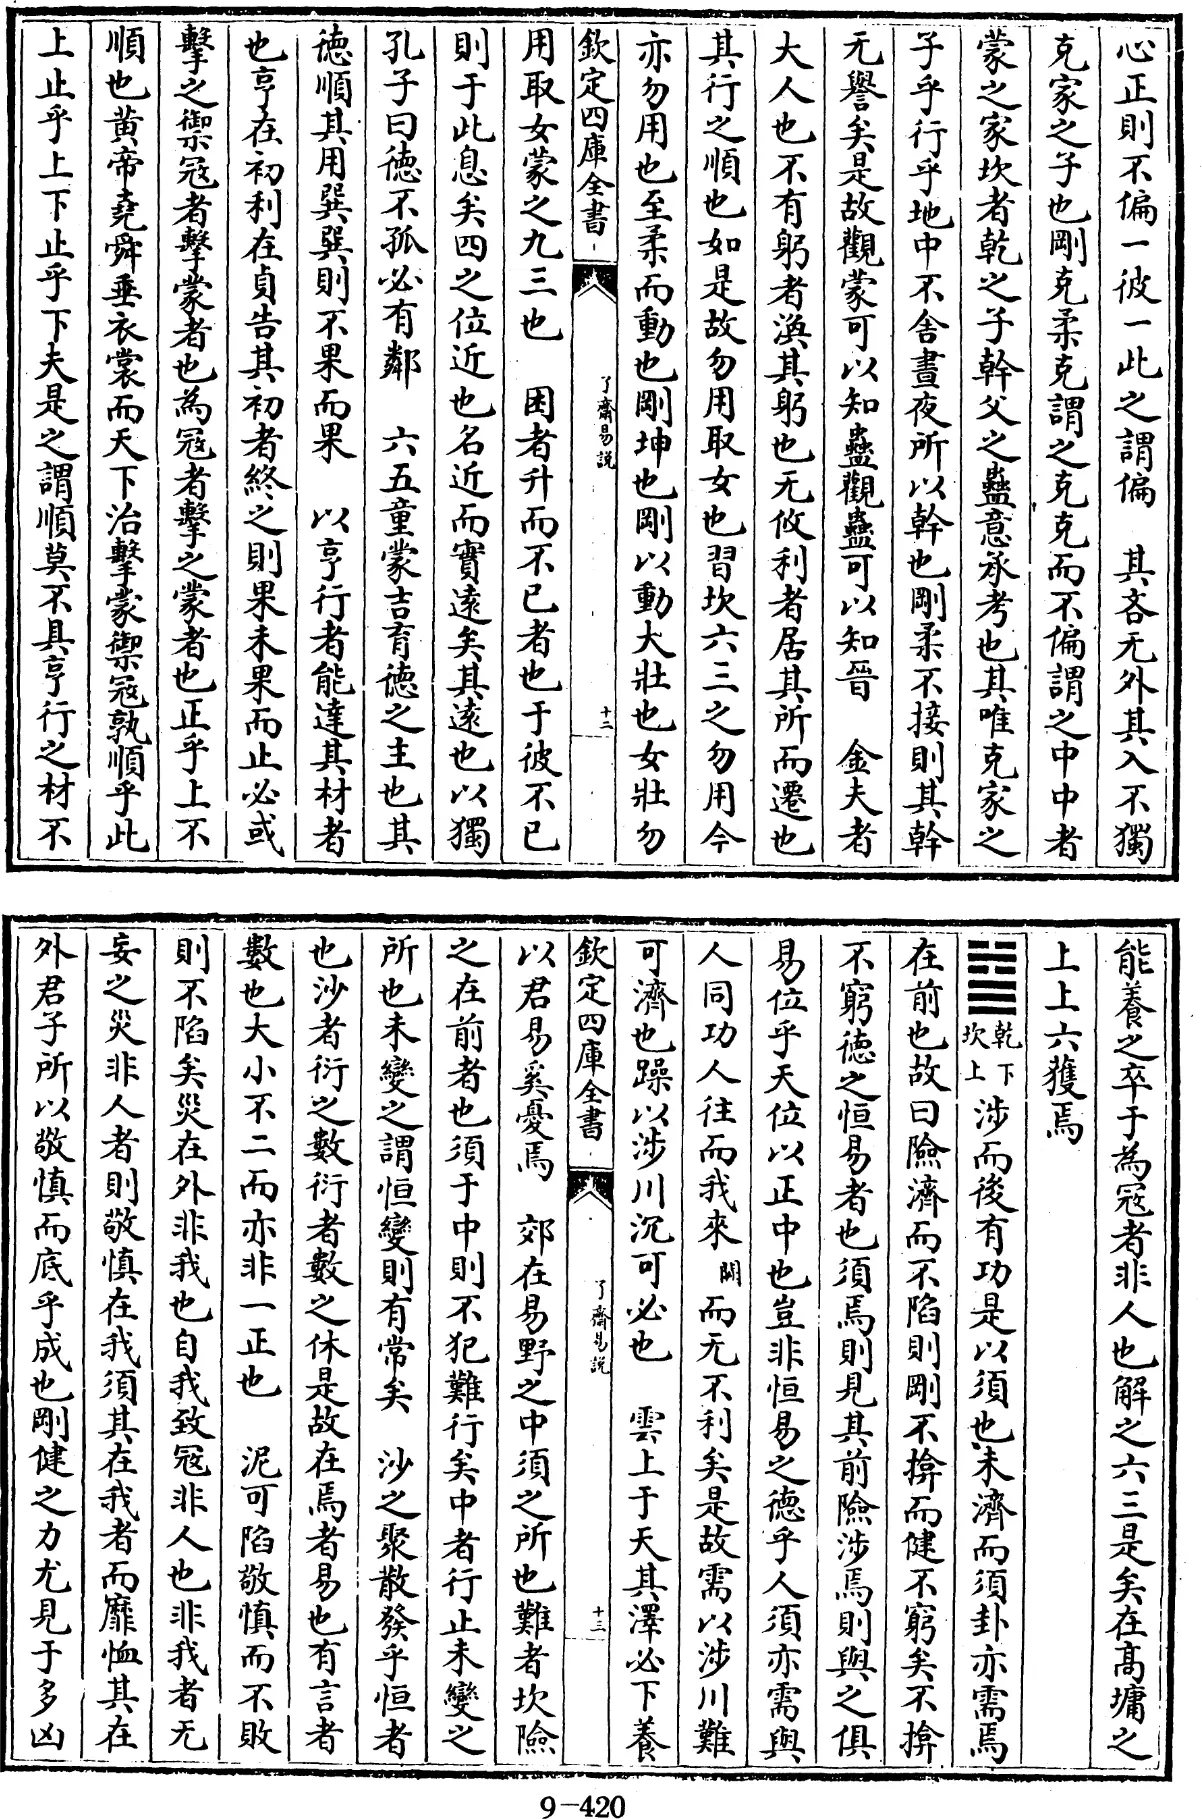 心正則不偏一彼一此之謂偏　其吝无外其入不獨
克家之子也剛克柔克謂之克克而不偏謂之中中者
蒙之家坎者乾之子幹父之蠱意承考也其唯克家之
子乎行乎地中不舍晝夜所以幹也剛柔不接則其幹
无譽矣是故觀蒙可以知蠱觀蠱可以知晉　金夫者
大人也不有躬者渙其躬也无攸利者居其所而遷也
其行之順也如是故勿用取女也習坎六三之勿用今
亦勿用也至柔而動也剛坤也剛以動大壯也女壯勿
欽定四庫全書
了齋易說
十二
用取女蒙之九三也　困者升而不已者也于彼不已
則于此息矣四之位近也名近而實遠矣其遠也以獨
孔子曰德不孤必有鄰　六五童蒙吉育德之主也其
德順其用巽巽則不果而果　以亨行者能達其材者
也亨在初利在貞告其初者終之則果未果而止必或
擊之禦冦者擊蒙者也為冦者擊之蒙者也正乎上不
順也黄帝堯舜垂衣裳而天下治擊蒙禦冦孰順乎此
上止乎上下止乎下夫是之謂順莫不具亨行之材不
能養之卒于為冦者非人也解之六三是矣在髙墉之
上上六獲焉
䷄乾下坎上涉而後有功是以須也未濟而須卦亦需焉
在前也故曰險濟而不陷則剛不揜而健不窮矣不揜
不窮德之恒易者也須焉則見其前險涉焉則與之俱
易位乎天位以正中也豈非恒易之德乎人須亦需與
人同功人往而我來闕而无不利矣是故需以涉川難
可濟也躁以涉川沉可必也　雲上于天其澤必下養
欽定四庫全書
了齋易說
十三
以君易奚憂焉　郊在易野之中須之所也難者坎險
之在前者也須于中則不犯難行矣中者行止未變之
所也未變之謂恒變則有常矣　沙之聚散發乎恒者
也沙者衍之數衍者數之休是故在焉者易也有言者
數也大小不二而亦非一正也　泥可陷敬慎而不敗
則不陷矣災在外非我也自我致冦非人也非我者无
妄之災非人者則敬慎在我須其在我者而靡恤其在
外君子所以敬慎而底乎成也剛健之力尤見于多凶
9-420